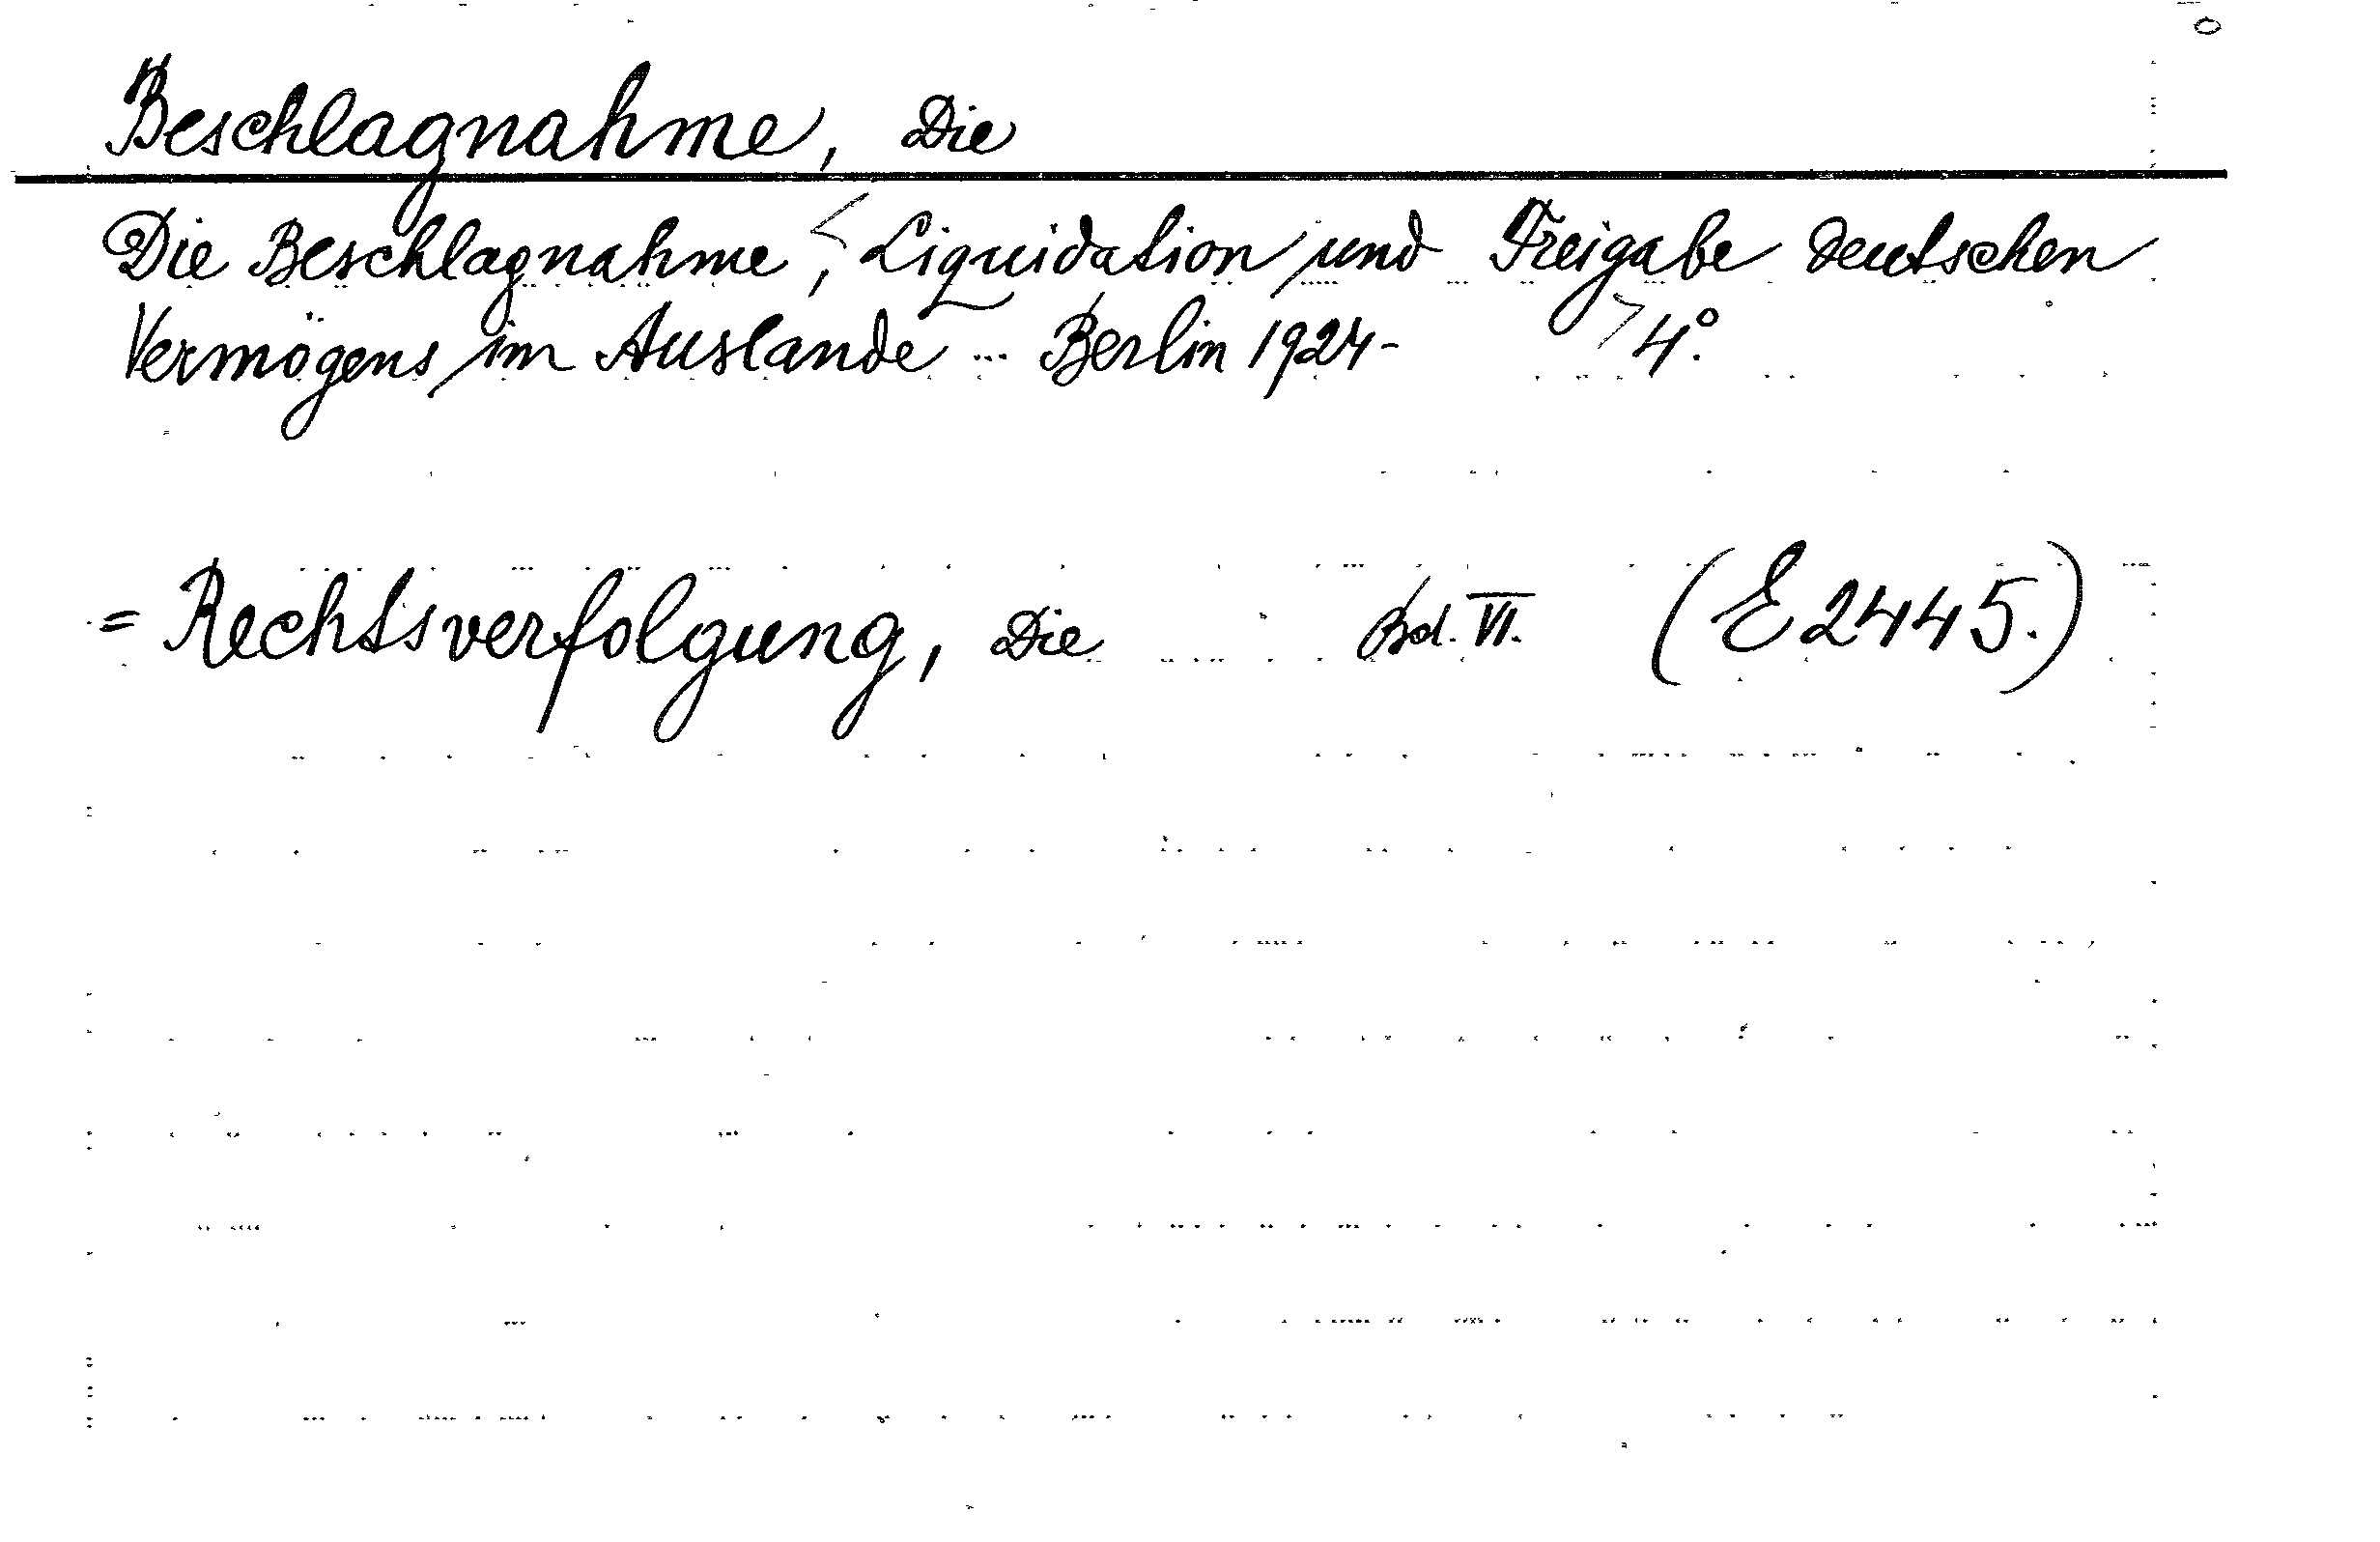 Beschlagnahme, Die
Die Beschlagnahme, Liquidation und Freigabe deutschen
Vermögens im Auslande ... Berlin 1924- 4°.
= Rechtsverfolgung, Die Bd. VI. (E 2445.)